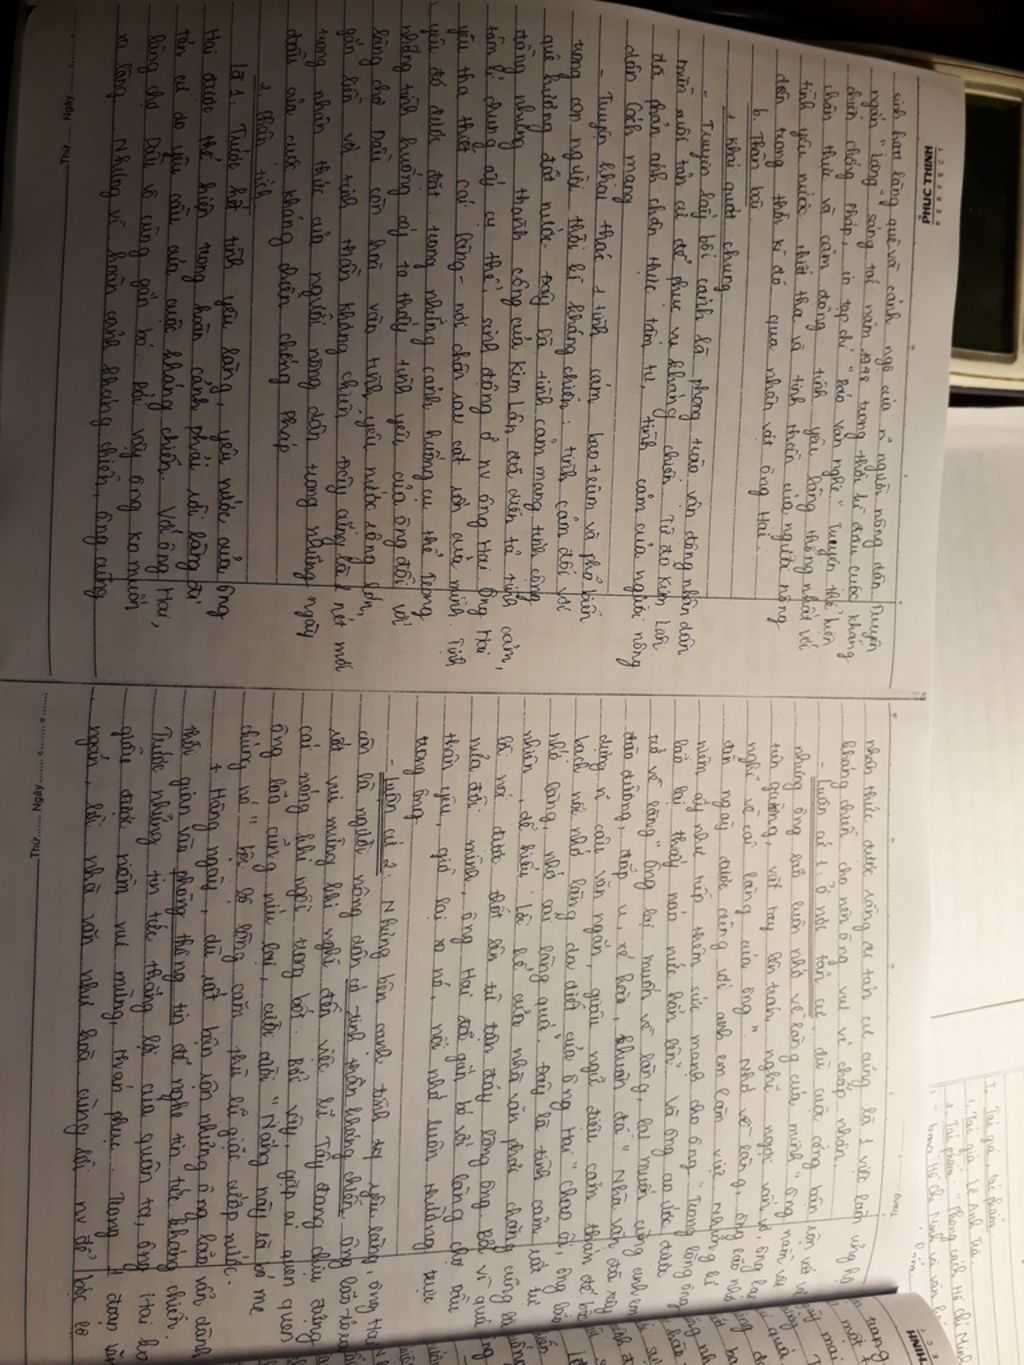 PHÚC THỊNH
sinh hoạt làng quê và cảnh ngộ của n~ người nông dân. Truyện
ngắn "Làng" sáng tác năm 1948 trong thời kì đầu cuộc kháng
chiến chống Pháp, in tạp chí "Báo văn nghệ". Truyện thể hiện
chân thực và cảm động tình yêu làng thống nhất với
tình yêu nước thiết tha và tinh thần của người nông
dân trong thời kì đó qua nhân vật ông Hai.
b. Thân bài
1. Khái quát chung
- Truyện lấy bối cảnh là phong trào vận động nhân dân
miền xuôi tản cư để phục vụ kháng chiến. Từ đó Kim Lân
đã phản ánh chân thực tâm tư, tình cảm của người nông
dân Cách mạng
- Truyện khai thác 1 tình cảm bao trùm và phổ biến
trong con người thời kì kháng chiến: tình cảm đối với
quê hương đất nước. Đây là tình cảm mang tính cộng
đồng nhưng thành công của Kim Lân đã diễn tả tình cảm,
tâm lí chung ấy cụ thể, sinh động ở nv ông Hai. Ông Hai
yêu tha thiết cái làng - nơi chôn rau cắt rốn của mình. Tình
yêu đó được đặt trong những cảnh huống cụ thể. Trong
những tình huống ấy ta thấy tình yêu của ông đối với
làng chợ Dầu còn hoà vào tình yêu nước rộng lớn,
gắn liền với tinh thần kháng chiến. Đây cũng là nét mới
trong nhận thức của người nông dân trong những ngày
đầu của cuộc kháng chiến chống Pháp
2. Phân tích
Lđ 1. Trước hết tình yêu làng, yêu nước của ông
Hai được thể hiện trong hoàn cảnh phải rời làng đi
tản cư do yêu cầu của cuộc kháng chiến. Với ông Hai,
làng chợ Dầu vô cùng gắn bó. Bởi vậy ông ko muốn
xa làng. Nhưng vì hoàn cảnh kháng chiến, ông cũng
Thứ ........ Ngày ........
nhận thức được rằng cư tản cư cũng là 1 việc làm ủng hộ
kháng chiến cho nên ông vui vẻ chấp nhận.
- Luận cứ 1: Ở nơi tản cư, dù cuộc sống bận rộn
nhưng ông lão luôn nhớ về làng của mình "ông nằm
trên giường, vắt tay lên trán, nghĩ ngợi vẩn vơ, ông
nghĩ về cái làng của ông". Nhớ về làng, ông lão nhớ
đến ngày được cùng với anh em làm việc. Những kỉ
niệm ấy như tiếp thêm sức mạnh cho ông "Trong lòng ông
lão lại thấy náo nức hẳn lên". Và ông ao ước được
trở về làng "Ông lại muốn về làng, lại muốn cùng anh em
đào đường, đắp ụ, xẻ hào, khuân đá". Nhà văn đã xây
dựng n~ câu văn ngắn, giàu ngữ điệu cảm thán để
bạch nỗi nhớ làng da diết của ông Hai "chao ôi, ông lão
nhớ làng, nhớ cái làng quá". Đây là tình cảm rất tự
nhiên, dễ hiểu. Lời kể của nhà văn phải chăng cũng là
lời nói được thốt lên từ tận đáy lòng ông. Bởi vì quá
nửa đời mình, ông Hai đã gắn bó với làng chợ Dầu
thân yêu, giờ lại xa nó, nỗi nhớ luôn thường trực
trong ông.
- Luận cứ 2: Những bên cạnh tình ty yêu làng, ông Hai
còn là người nông dân có tinh thần kháng chiến. Ông lão
rất vui mừng khi nghĩ đến việc lũ Tây đang chịu đựng
cái nóng khi ngồi trong bót. Bởi vậy, gặp ai quen
ông lão cũng níu lại, cười cười "Nắng này là bỏ mẹ
chúng nó" bộc lộ lòng căm thù lũ giặc cướp nước.
+ Hàng ngày, dù rất bận rộn nhưng ông lão vẫn dành
thời gian vào phòng thông tin để nghe tin tức kháng chiến.
Trước những tin tức thắng lợi của quân ta, ông Hai ko
giấu được niềm vui mừng, thán phục. Trong 1 đoạn văn
ngắn, lời nhà văn như hoà cùng lời nv để bộc lộ
Thứ ........ Ngày ........
I. Tác giả, tác phẩm
1. Tác giả: Lê Anh Trà
2. Tác phẩm: "Phong cách Hồ Chí Minh